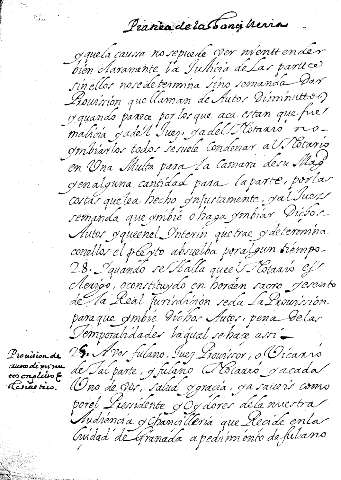 Practica de la Changilleria
y que la caussa no se puede ver ni entender
bien claramante, la Justicia de las partes
sin ellos no se determina sino se manda Dar
Provision que llaman de Autos Diminuttos,
y quando parece por los que acu estan que fue
malicia ya del Juez, ya del Notario no
ymbiarlos todos se suele condenar al Notario
en Una Multa para la Camara de su Magd
y en alguna cantidad para la parte, por las
costas que lea hecho ynjustamente, y al Juez se
se manda que ymbie o haga ymbiar Dichos
Autos y que en el Interin que trae y determina
con ellos el pleyto absuelba por algun tiempo.
28. Y quando se Halla que el Notario es
Clerigo, o constituydo en horden sacro y esento
de la Real Jurisdizion se da la Provission
para que ymbie Dichos Autos, pena de las
Temporalidades la qual se hace assi
Provision de
autos diminu
tos con clerigo
29. A vos fulano Juez Provisor, o Vicario
de tal parte, y fulano Notario y a cada
Uno de vos, salud y gracia, ya saveis como
por el Presidente y Oydores de la nuestra
Audiencia y Changilleria que Recide en la
Ciudad de Granada a pedimento de fulano